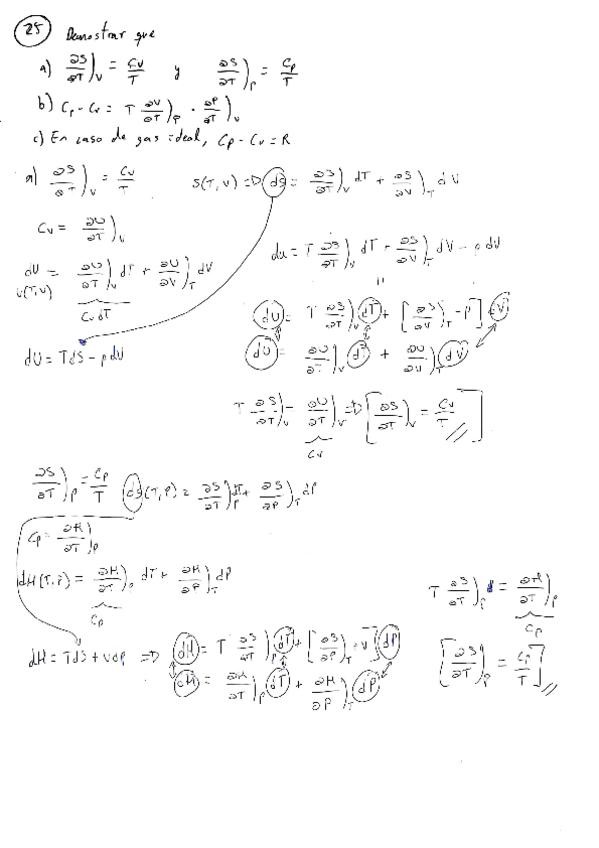 25 Demostrar que
a) ∂S/∂T)_V = Cv/T y ∂S/∂T)_P = Cp/T
b) Cp - Cv = T ∂V/∂T)_P · ∂P/∂T)_V
c) En caso de gas ideal, Cp - Cv = R
a) ∂S/∂T)_V = Cv/T S(T,V) ⇒ dS = ∂S/∂T)_V dT + ∂S/∂V)_T dV
Cv = ∂U/∂T)_V
dU = ∂U/∂T)_V dT + ∂U/∂V)_T dV
U(T,V)
Cv dT
dU = TdS - pdV
du = T ∂S/∂T)_V dT + ∂S/∂V)_T dV - pdV
"
dU = T ∂S/∂T)_V dT + [∂S/∂V)_T - P] dV
dU = ∂U/∂T)_V dT + ∂U/∂V)_T dV
T ∂S/∂T)_V - ∂U/∂T)_V ⇒ [∂S/∂T)_V = Cv/T]
Cv
∂S/∂T)_P = Cp/T dS(T,P) = ∂S/∂T)_P dT + ∂S/∂P)_T dP
Cp = ∂H/∂T)_P
dH(T,P) = ∂H/∂T)_P dT + ∂H/∂P)_T dP
Cp
dH = TdS + Vdp ⇒ dH = T ∂S/∂T)_P dT + [∂S/∂P)_T + V] dP
dH = ∂H/∂T)_P dT + ∂H/∂P)_T dP
T ∂S/∂T)_P = ∂H/∂T)_P
Cp
[∂S/∂T)_P = Cp/T]